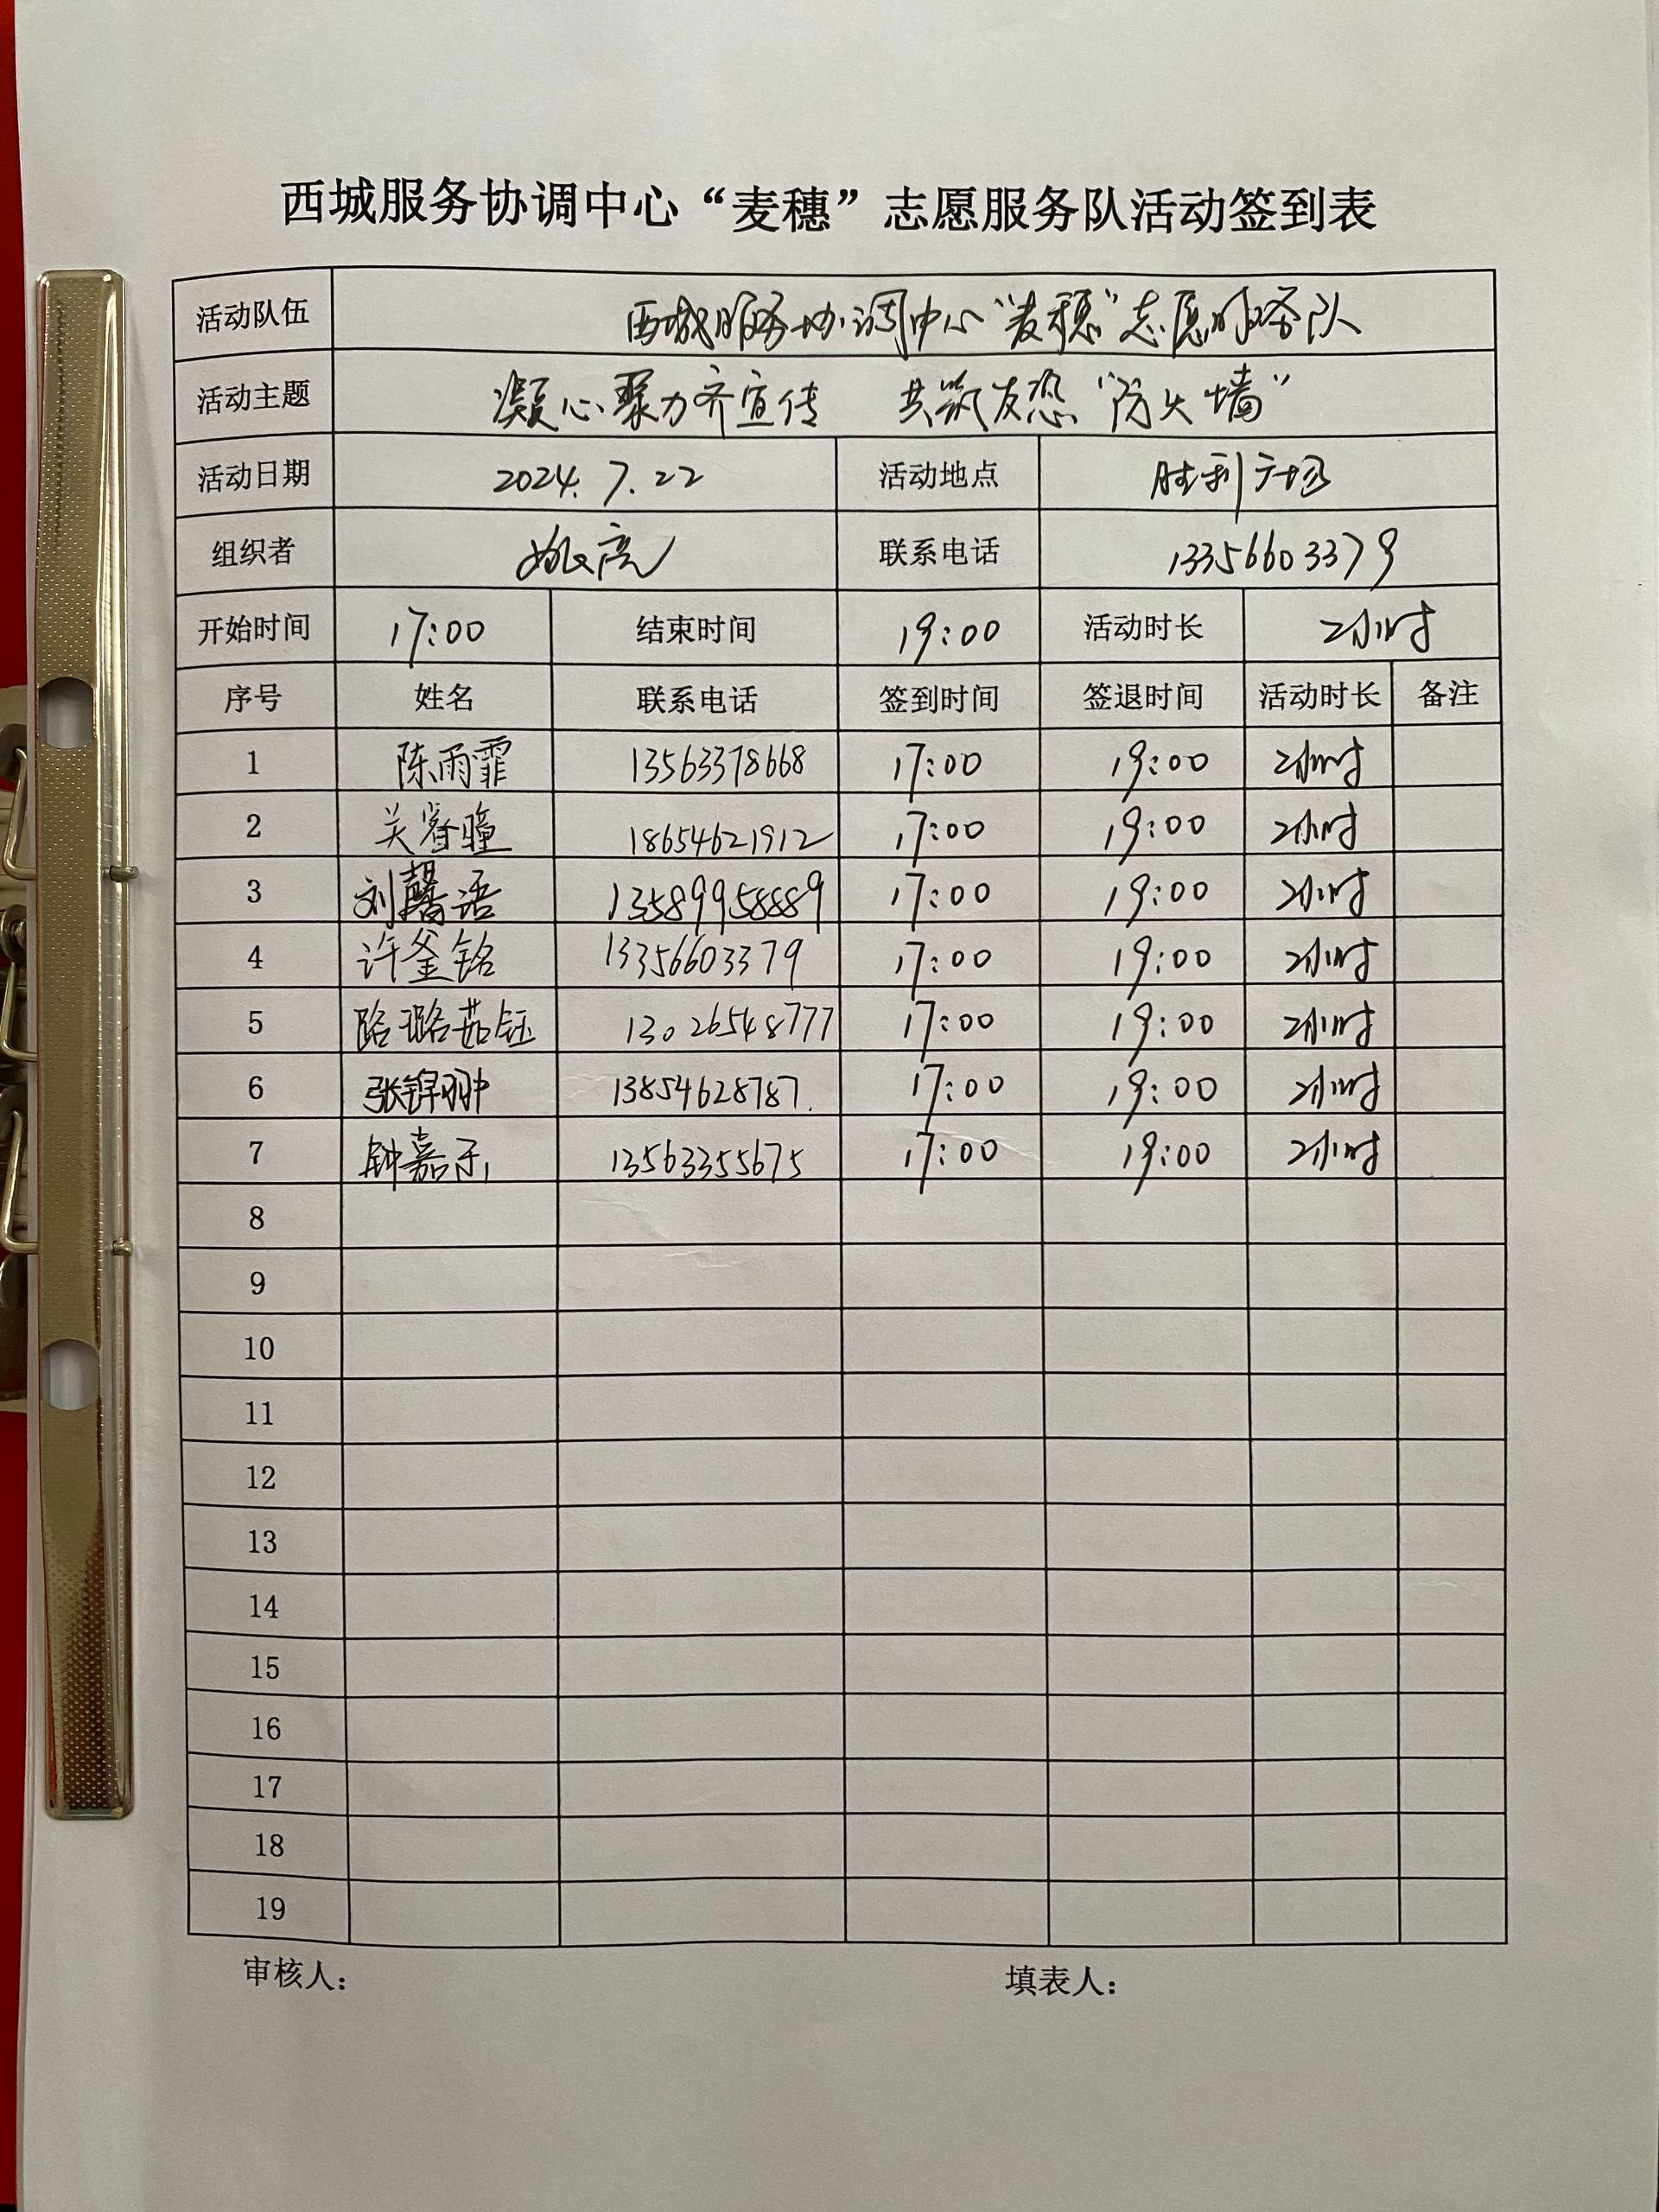 西城服务协调中心“麦穗”志愿服务队活动签到表
活动队伍 西城服务协调中心“麦穗”志愿服务队
活动主题 凝心聚力齐宣传 共筑反恐“防火墙”
活动日期 2024.7.22 活动地点 胜利广场
组织者 姚亮 联系电话 13356603379
开始时间 17:00 结束时间 19:00 活动时长 2小时
序号 姓名 联系电话 签到时间 签退时间 活动时长 备注
1 陈雨霏 13563378668 17:00 19:00 2小时
2 关睿瞳 18654621912 17:00 19:00 2小时
3 刘馨语 13589958889 17:00 19:00 2小时
4 许釜铭 13356603379 17:00 19:00 2小时
5 路璐茹钰 13026548777 17:00 19:00 2小时
6 张锦翀 13854628787. 17:00 19:00 2小时
7 钟嘉 13563355675 17:00 19:00 2小时
8
9
10
11
12
13
14
15
16
17
18
19
审核人： 填表人：